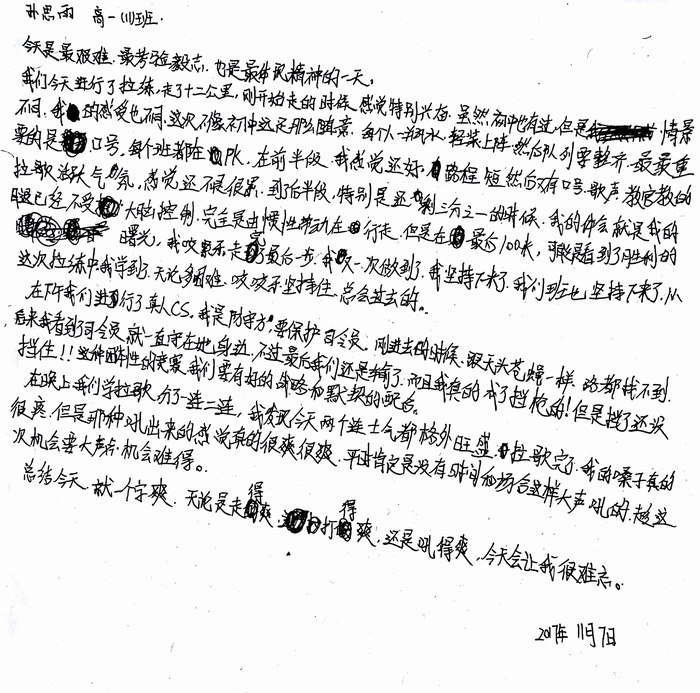 孙思雨 高一(1)班.
今天是最艰难.最考验毅志.也是最体现精神的一天,
我们今天进行了拉练,走了十二公里,刚开始走的时候.感觉特别兴奋.虽然初中也有过,但是情景
不同.我的感受也不同.这次不像初中这足那么随意.每个人一瓶水,轻装上阵.然后队列要整齐.最最重
要的是口号,每个班都在PK.在前半段.我感觉还好.路程短然后又有口号.歌声.教官教的
拉歌活跃大气氛,感觉还不是很累.到了后半段,特别是还剩三分之一的时候.我的体会就是我的
腿已经不受大脑控制.完全是由惯性带动在行走.但是在最后100米,可能是看到了胜利的
曙光,我咬紧牙走了最后一步.我又一次做到了.我坚持下来了.我们班也坚持下来了.从
这次拉练中我学到了.无论多困难.咬咬牙坚持住.总会过去的。
在下午我们进行了真人CS.我是防守方.要保护司令员.刚进去的时候.跟无头苍蝇一样.路都找不到.
后来我看到了司令员.就一直守在她身边.不过最后我们还是输了.而且我真的成了挡枪的!但是挡了还没
挡住!!这种团体性的竞赛.我们要有好的战略和默契的配合。
在晚上我们学拉歌.分了一连二连,我发现今天两个连士气都格外旺盛.拉歌完了.我的嗓子真的
很疼.但是那种吼出来的感觉真的很爽很爽.平时肯定是没有时间和场合这样大声吼的.趁这
次机会要大声点.机会难得。
总结今天.就一个字爽.无论是走得爽,打得爽,还是吼得爽,今天会让我很难忘。
2017年11月7日